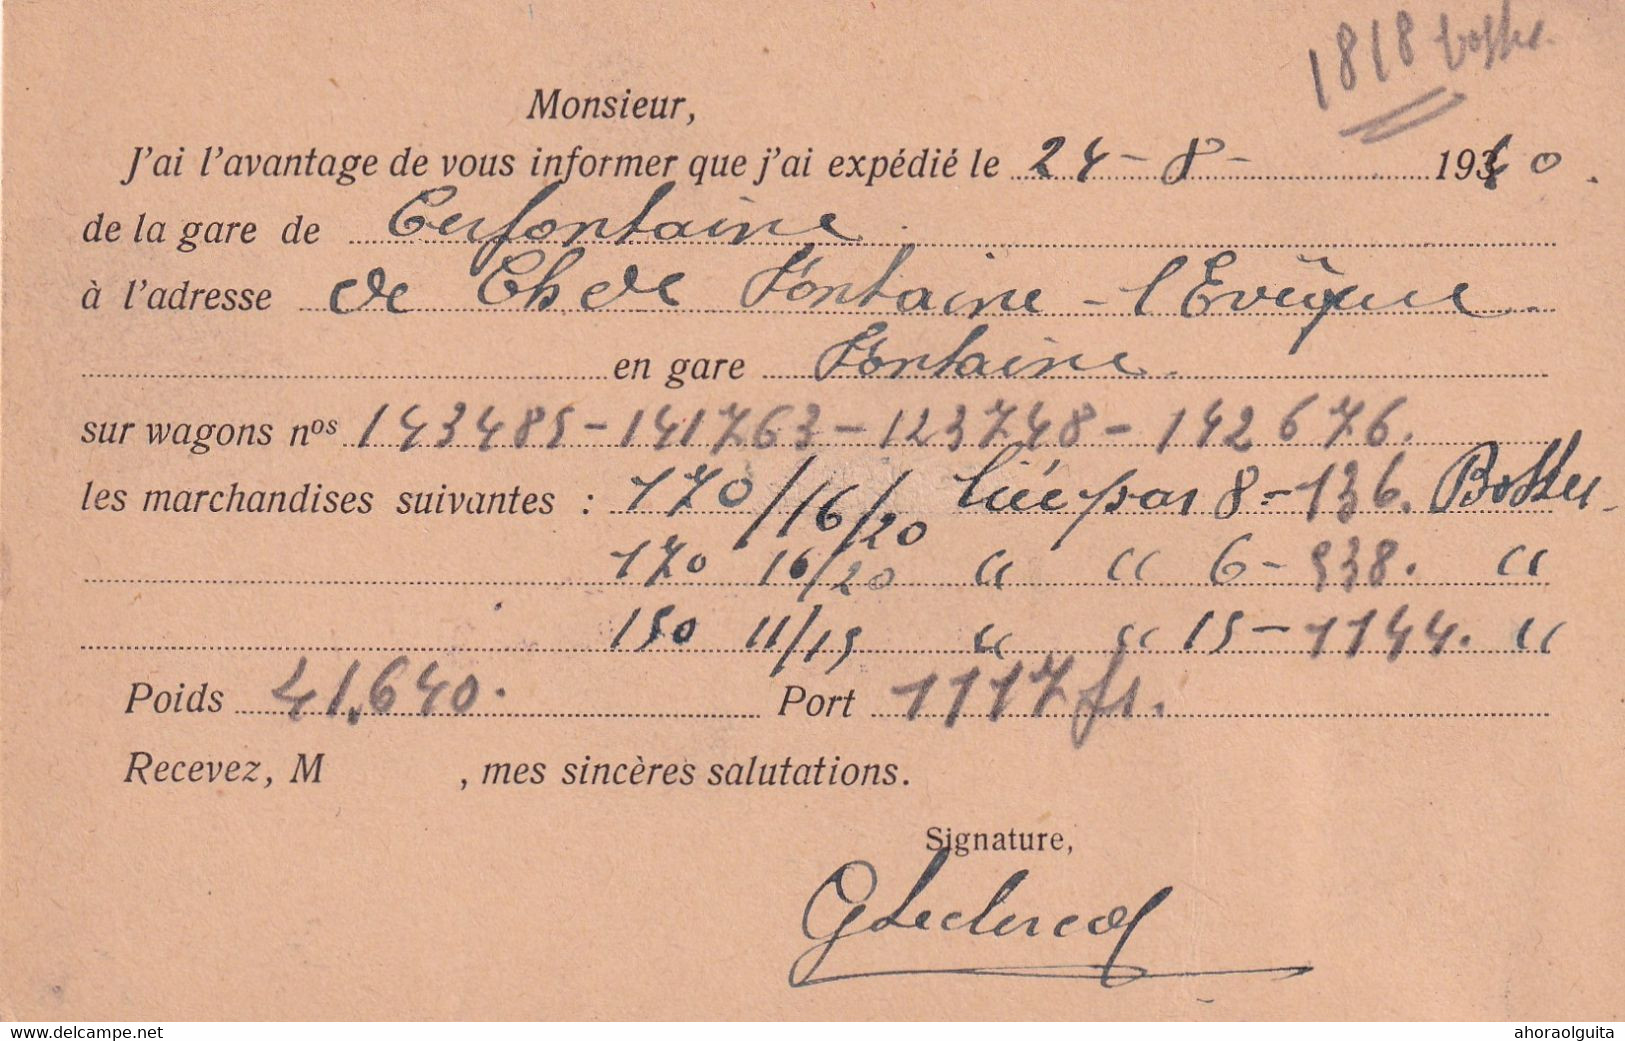 1818 bottes.
Monsieur,
J'ai l'avantage de vous informer que j'ai expédié le 24-8- 1940.
de la gare de Cerfontaine.
à l'adresse de Ch de Fontaine-l'Evêque.
en gare Fontaine.
sur wagons nos 143485-141763-123748-142676.
les marchandises suivantes : 170/16/20 liée par 8-136. Bottes
170 16/20 " " 6-538. "
150 11/15 " " 15-1144. "
Poids 41.640. Port 1117 frs.
Recevez, M , mes sincères salutations.
Signature,
G Leclercq
www.delcampe.net ahoraolguita